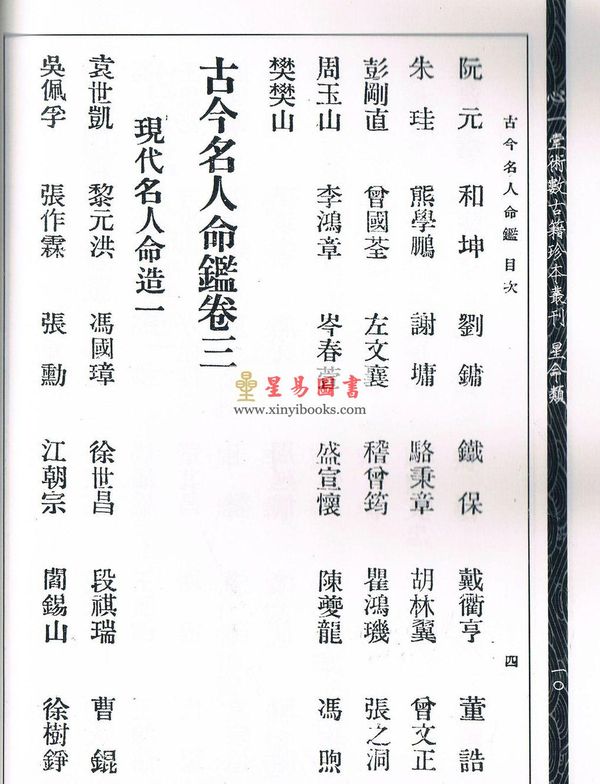 心一堂術數古籍珍本叢刊 星命類
一〇
古今名人命鑑 目次
四
阮元 和坤 劉鏞 鐵保 戴衢亨 董誥
朱珪 熊學鵬 謝墉 駱秉章 胡林翼 曾文正
彭剛直 曾國荃 左文襄 稽曾筠 瞿鴻璣 張之洞
周玉山 李鴻章 岑春萱 盛宣懷 陳夔龍 馮煦
樊樊山
古今名人命鑑卷三
現代名人命造一
袁世凱 黎元洪 馮國璋 徐世昌 段祺瑞 曹錕
吳佩孚 張作霖 張勳 江朝宗 閻錫山 徐樹錚
星易圖書
www.xinyibooks.com